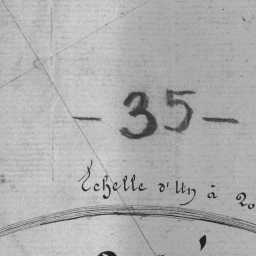 - 35 -
Echelle d'Un à 20